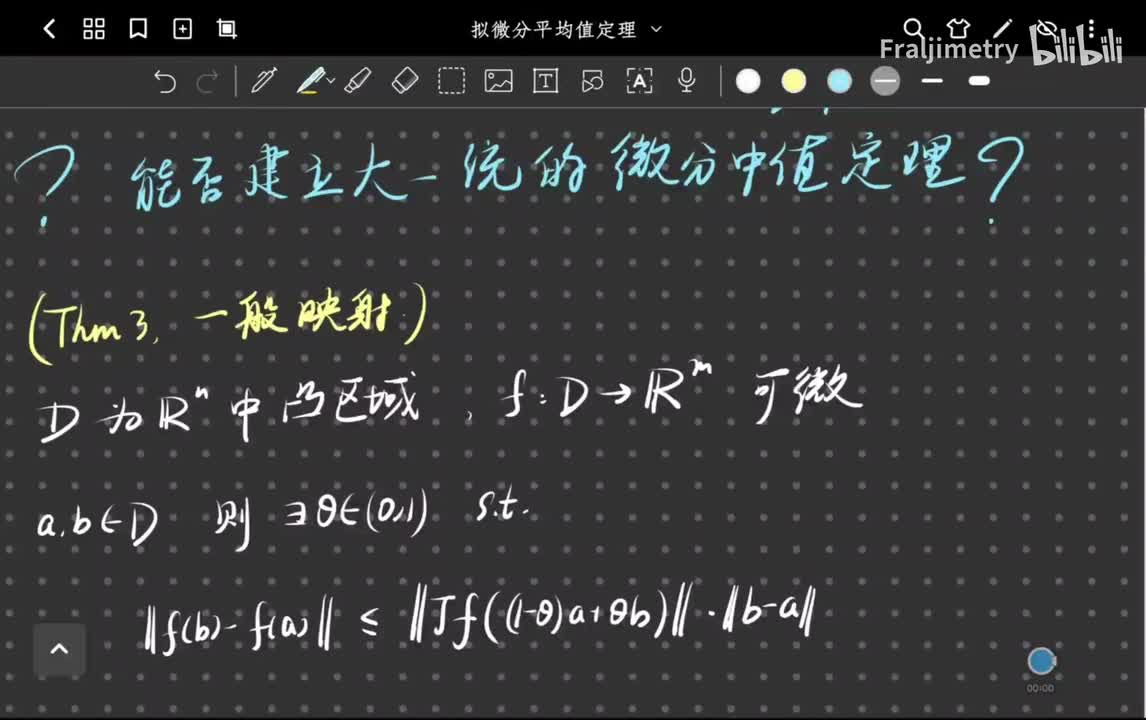 拟微分平均值定理
Fraljimetry bilibili
? 能否建立大一统的微分中值定理?
(Thm 3, 一般映射.)
D 为 ℝⁿ 中凸区域, f: D → ℝᵐ 可微
a, b ∈ D 则 ∃θ∈(0,1) s.t.
‖f(b) - f(a)‖ ≤ ‖Jf((1-θ)a+θb)‖·‖b-a‖
00:00